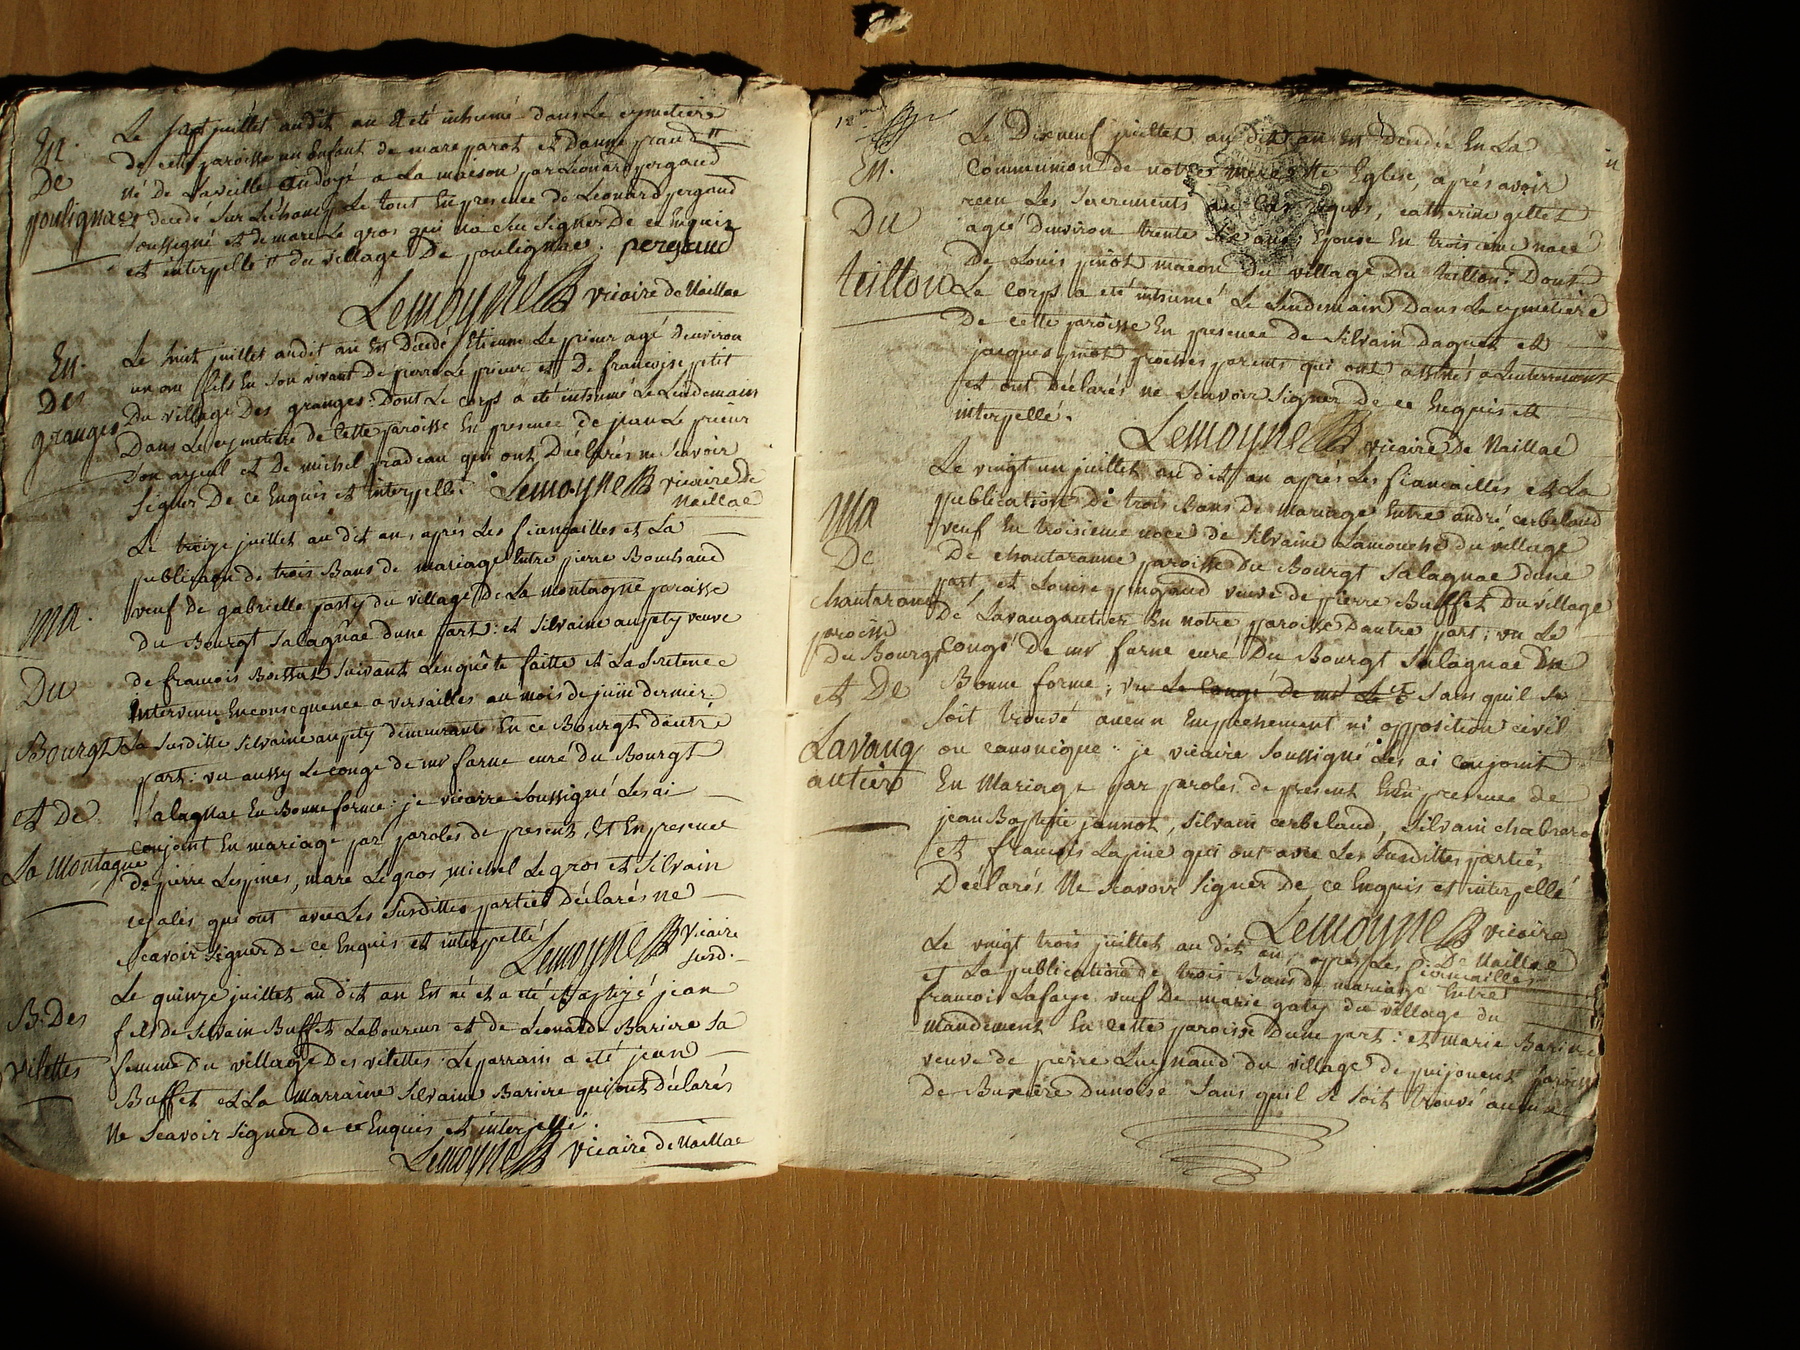 En.
De
poulignac
Le sept juillet audit an a été inhumé dans le cymetiere
de cette paroisse un Enfant de marc parot et Danne
né De Laveille ondoyé a La maison par Leonard pergaud
et decedé Sur Le tout En presence de Leonard pergaud
soussigné et de marc Le gros qui na Seu Signer De ce Enquis
et interpellé du village De poulignac. pergaud
Lemoyne vicaire de Naillac
En.
Des
granges
Le huit juillet audit an Est Décédé Etienne Le prieur agé denviron
un an fils En Son vivant De pierre Le prieur et De francoise petit
Du village Des granges: Dont Le corps a été inhumé Le Lendemain
Dans Le cymetiere de cette paroisse En presence de jean Le prieur
Son ayeul et De michel pradeau qui ont Déclarés ne Scavoir
Signer De ce Enquis et interpellé. Lemoyne vicaire de
Naillac
ma.
Du
Bourgt
et De
La Montagne
Le treize juillet audit an, après Les fiancailles et La
publicaon de trois Bans de mariage Entre pierre Bouchaud
veuf de gabrielle pasty du village De La montagne paroisse
du Bourgt Salagnac dune part: et Silvaine aupety veuve
de francois Boessut Suivant Lenquête faitte et La Sentence
intervenu Enconsequence a versailles au mois de juin dernier.
La Susditte Silvaine aupety demeurante En ce Bourgt dautre
part: vu aussy Le congé de mr farne curé du Bourgt
Salagnac En Bonne forme: je vicaire Soussigné Les ai
conjoint En mariage par paroles de present, Et En presence
de pierre Lespines, marc Legros, michel Legros et Silvain
qui ont avec Les Susdittes parties Déclarés ne
Scavoir Signer de ce Enquis et interpellé Lemoyne vicaire
susd.
B. Des
vilettes
Le quinze juillet audit an Est né et a été Baptizé jean
fils de Silvain Buffet Laboureur et de Leonarde Bariere Sa
femme Du village Des vilettes: Le parrain a eté jean
Buffet et La Marraine Silvaine Bariere qui ont déclarés
Ne Scavoir Signer de ce Enquis et interpellé.
Lemoyne vicaire de Naillac
En.
Du
teillou
Le Dixneuf juillet audit an Est Decedée En La
Communion de notre mere Ste Eglise, aprés avoir
recu Les Sacrements catherine gettet
agée denviron trente Six ans, Epouse En troisieme noce
De Louis pinot macon du village Du teillou: Dont
Le corps a eté inhumé Le Lendemain Dans Le cymetiere
De cette paroisse En presence de Silvain Daguet et
jacques pinot proches parents qui ont assistés a Lenterrement
et ont Déclarés ne Scavoir Signer de ce Enquis et
interpellé.
Lemoyne vicaire De Naillac
Ma
De
chantaranne
paroisse
du Bourgt
et De
Lavaug
autier
Le vingt un juillet audit an après Les fiancailles et La
publication De trois Bans De mariage Entre andré cerbelaud
veuf En troisieme noce de Silvaine Lamouche du village
De chantaranne paroisse Du Bourgt Salagnac dune
part, et Louise pingaud veuve de pierre Buffet Du village
De Lavaugautier En notre paroisse Dautre part; vu Le
Congé De mr farne curé Du Bourgt Salagnac En
Bonne forme; vu Le Congé de mr Sans quil Se
Soit trouvé aucun Empechement ni opposition civil
ou canonique: je vicaire Soussigné Les ai conjoint
En Mariage par paroles de present En presence de
jean Baptiste jannot, Silvain cerbelaud, Silvain
et francois Lapine qui ont avec Les Susdittes parties
Déclarés Ne Scavoir Signer De ce Enquis et interpellé
Lemoyne vicaire
De Naillac
Le vingt trois juillet audit an, apres Les fiancailles
et La publication de trois Bans de mariage Entre
francois Lafaye veuf De marie gaty du village du
mandement En cette paroisse Dune part: et marie Bariere
veuve de pierre Luegnaud du village de puijouent paroisse
de Buxiere Dunoise Sans quil Se Soit trouvé aucun